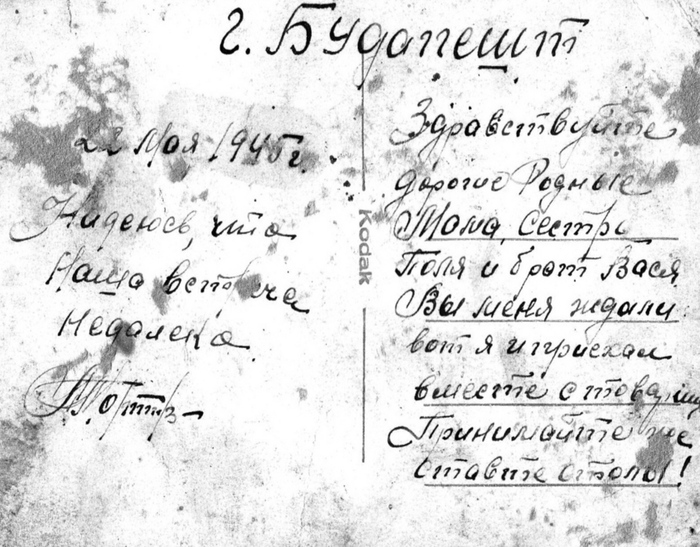 г. Будапешт
22 Мая 1945г.
Нидеюсь, что
Наша встреча
недалека.
Kodak
Здравствуйте
дорогие Родные
Мама, Сестры
Поля и брат Вася
Вы меня ждали
вот я и приехал
вместе с
Принимайте
ставте столы!